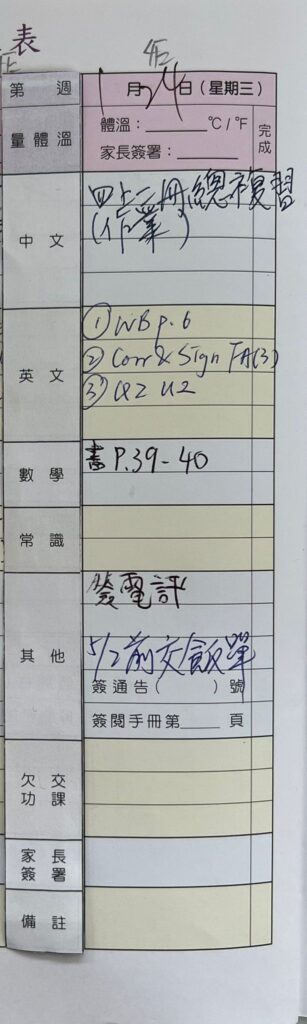 表
第 週
1月24日(星期三)
量體溫
體溫：______℃/℉
家長簽署：______
完成
中文
四上二冊總複習
(作業)
英文
① WB p. 6
② Corr & Sign FA(3)
③ QZ U2
數學
書 P.39-40
常識
其他
簽電評
5/2前交飯單
簽通告( )號
簽閱手冊第____頁
欠交功課
家長簽署
備註